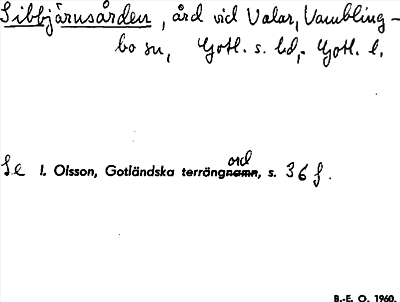 Sibbjärnsården, ård vid Valar, Vambling-
bo sn, Gotl. s. hd, Gotl. l.
ord
Se I. Olsson, Gotländska terrängnamn, s. 36 f.
B.-E. O. 1960.